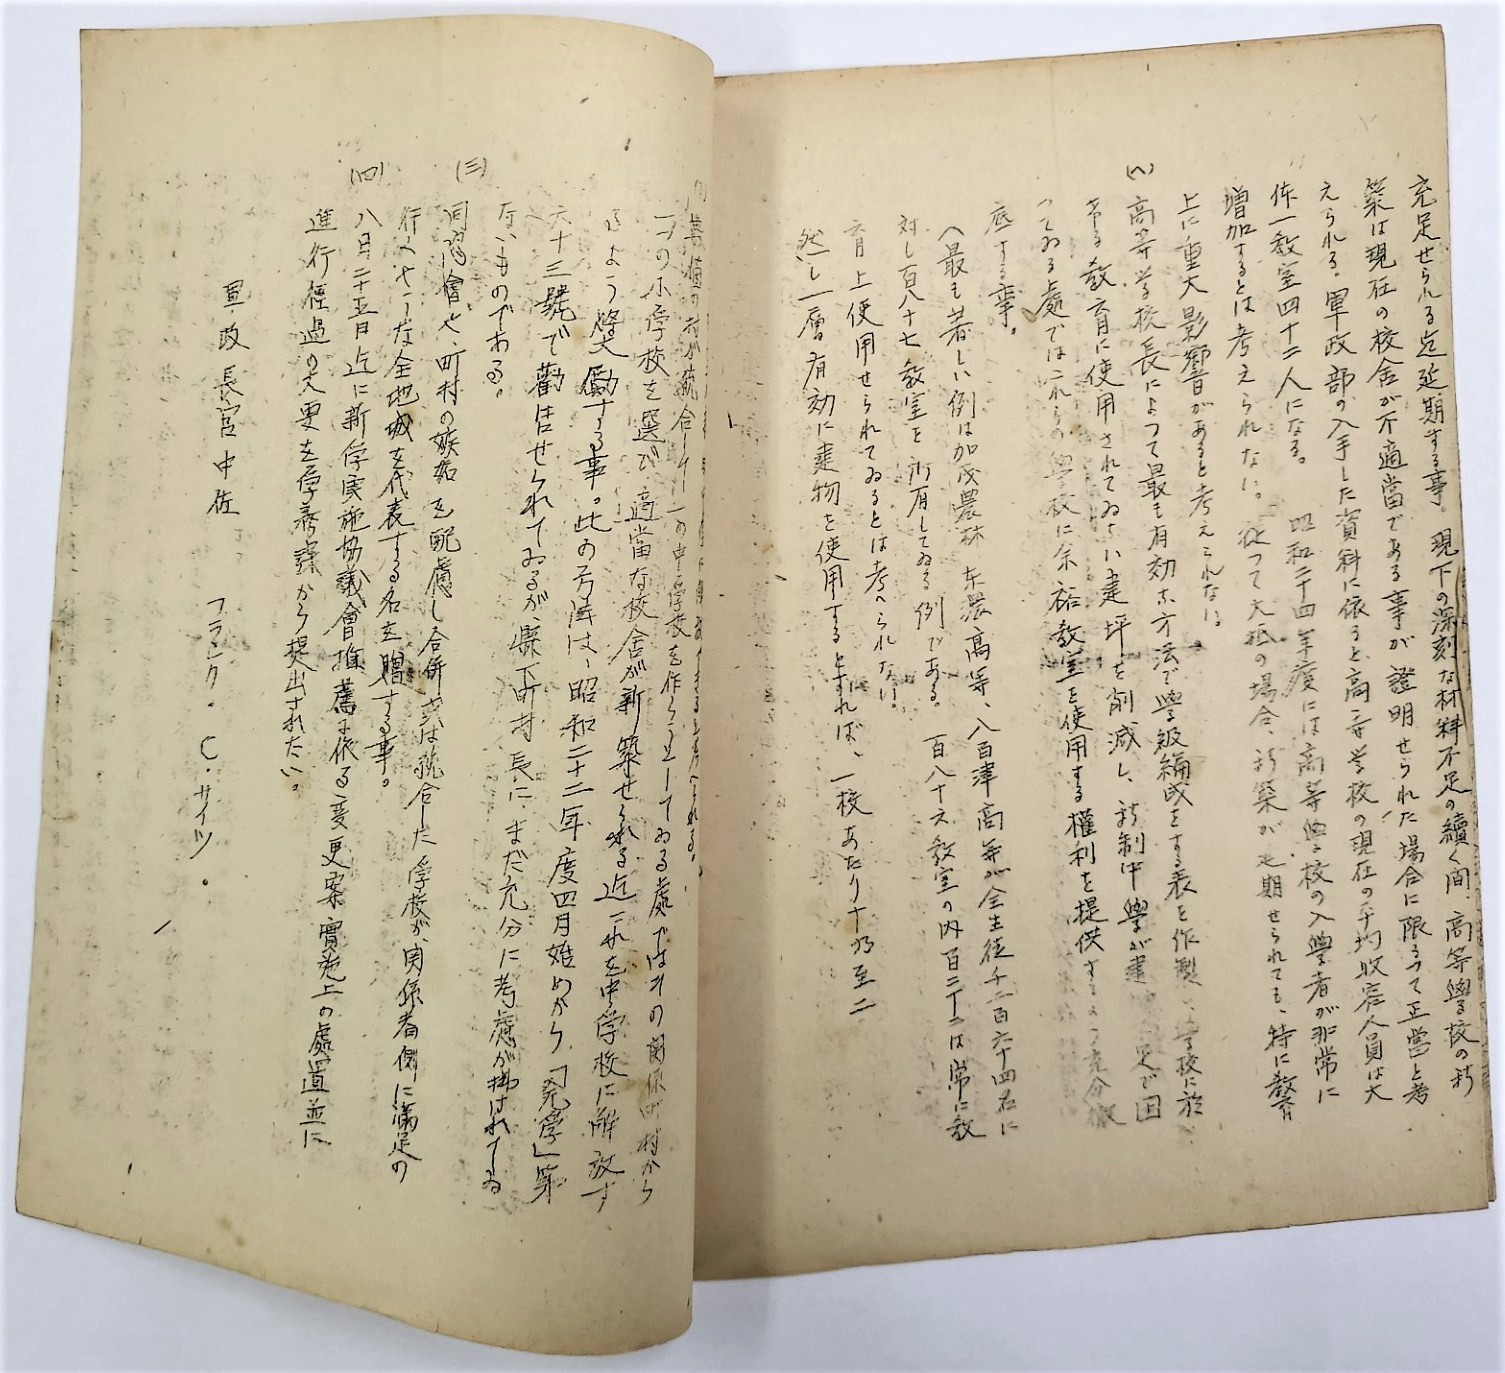 充足せられる迄延期する事。現下の深刻な材料不足の續く間、高等學校の新
築は現在の校舍が不適當である事が證明せられた場合に限つて正當と考
えられる。軍政部の入手した資料に依ると高等学校の現在の平均收容人員は大
体一教室四十二人になる。昭和二十四年度には高等學校の入學者が非常に
増加するとは考えられない。從つて大抵の場合、新築が延期せられても、特に教育
上に重大影響があると考えられない。
高等学校長によつて最も有効な方法で學級編成をする表を作製し、学校に於
ける教育に使用されてゐない建坪を削減し、新制中學が建 足で困
つてゐる處ではこれらの學校に余裕教室を使用する權利を提供する 充分徹
底する事。
へ最も著しい例は加茂農林、東濃高等、八百津高等が全生徒千二百六十四名に
対し百八十七教室を所有してゐる例である。百八十六教室の内百二十二は常に教
育上使用せられてゐるとは考へられない。
然し一層有効に建物を使用するとすれば、一校あたり十乃至二
一つの小学校を選び、適當な校舍が新築せられる迄これを中学校に解放す
るよう奬励する事。此の方法は、昭和二十二年度四月始めから「発学」第
六十三號で勸告せられてゐるが、縣下町村長に、まだ充分に考慮が拂はれてゐ
ないものである。
(三) 同協會は、町村の嫉妬を配慮し合併或は統合した学校が、関係者側に滿足の
行くやうな全地域を代表する名を贈する事。
(四) 八月二十五日迄に新学実施協議會推薦に依る変更案實施上の處置並に
進行経過の文更を学務課から提出されたい。
軍政長官中佐 フランク・C・サイツ・